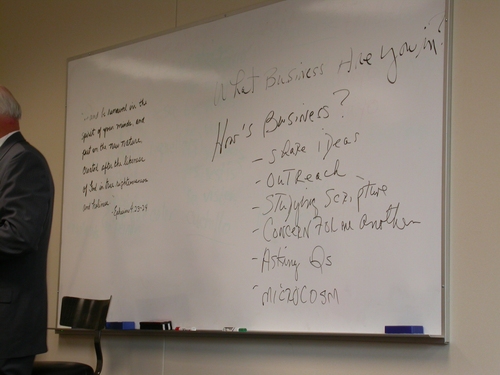 and be renewed in the
spirit of your minds, and
put on the new nature,
created after the likeness
of God in true righteousness
and holiness.
-Ephesians 4:23-24
What Business Are You in?
How's Business?
- Share ideas
- OutReach
- Studying Scripture
- Concern For one another
- Asking Qs
- MICROCOSM